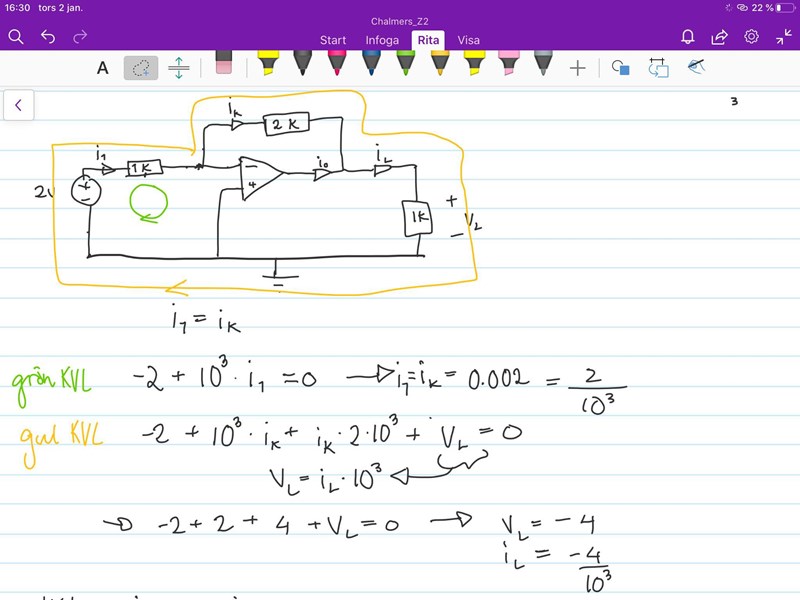 16:30 tors 2 jan.
22 %
Chalmers_Z2
Start Infoga Rita Visa
A
3
iK
2K
i1
1K
io
iL
2V
-
+
+
-
1K
+
VL
-
i1 = iK
grön KVL -2 + 10³ · i1 = 0 → i1 = iK = 0.002 = 2/10³
gul KVL -2 + 10³ · iK + iK · 2·10³ + VL = 0
VL = iL · 10³
→ -2 + 2 + 4 + VL = 0 → VL = -4
iL = -4/10³